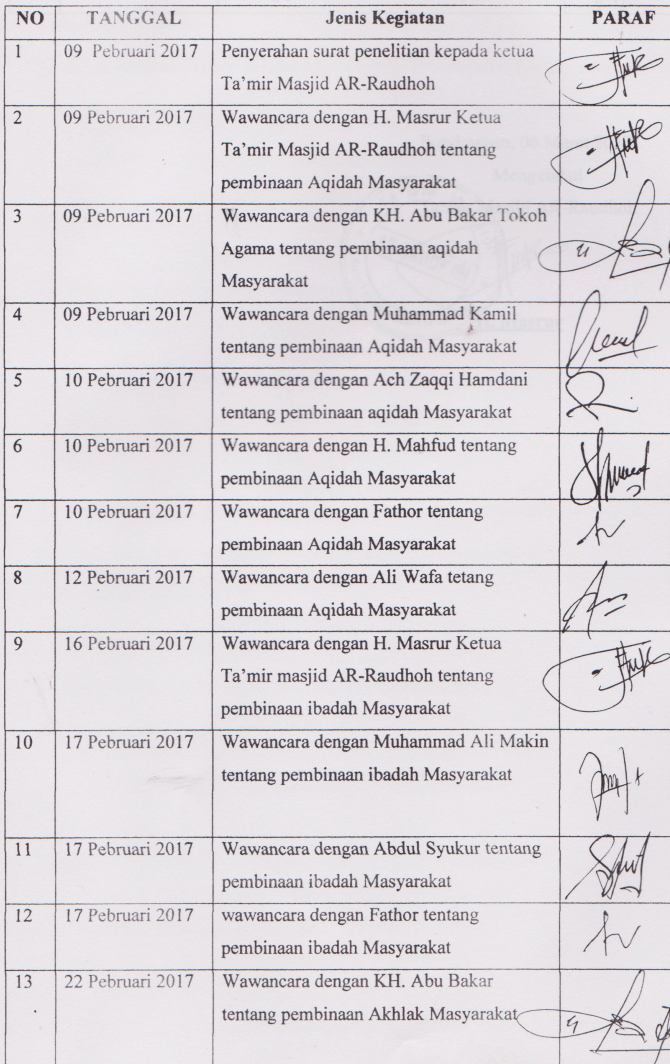 NO TANGGAL Jenis Kegiatan PARAF
1 09 Pebruari 2017 Penyerahan surat penelitian kepada ketua
Ta'mir Masjid AR-Raudhoh
2 09 Pebruari 2017 Wawancara dengan H. Masrur Ketua
Ta'mir Masjid AR-Raudhoh tentang
pembinaan Aqidah Masyarakat
3 09 Pebruari 2017 Wawancara dengan KH. Abu Bakar Tokoh
Agama tentang pembinaan aqidah
Masyarakat
4 09 Pebruari 2017 Wawancara dengan Muhammad Kamil
tentang pembinaan Aqidah Masyarakat
5 10 Pebruari 2017 Wawancara dengan Ach Zaqqi Hamdani
tentang pembinaan aqidah Masyarakat
6 10 Pebruari 2017 Wawancara dengan H. Mahfud tentang
pembinaan Aqidah Masyarakat
7 10 Pebruari 2017 Wawancara dengan Fathor tentang
pembinaan Aqidah Masyarakat
8 12 Pebruari 2017 Wawancara dengan Ali Wafa tetang
pembinaan Aqidah Masyarakat
9 16 Pebruari 2017 Wawancara dengan H. Masrur Ketua
Ta'mir masjid AR-Raudhoh tentang
pembinaan ibadah Masyarakat
10 17 Pebruari 2017 Wawancara dengan Muhammad Ali Makin
tentang pembinaan ibadah Masyarakat
11 17 Pebruari 2017 Wawancara dengan Abdul Syukur tentang
pembinaan ibadah Masyarakat
12 17 Pebruari 2017 wawancara dengan Fathor tentang
pembinaan ibadah Masyarakat
13 22 Pebruari 2017 Wawancara dengan KH. Abu Bakar
tentang pembinaan Akhlak Masyarakat